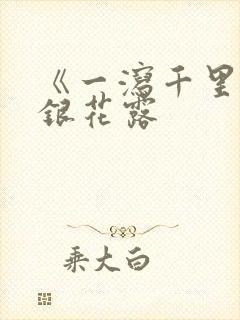 《一瀉千里
銀花露
乘大白